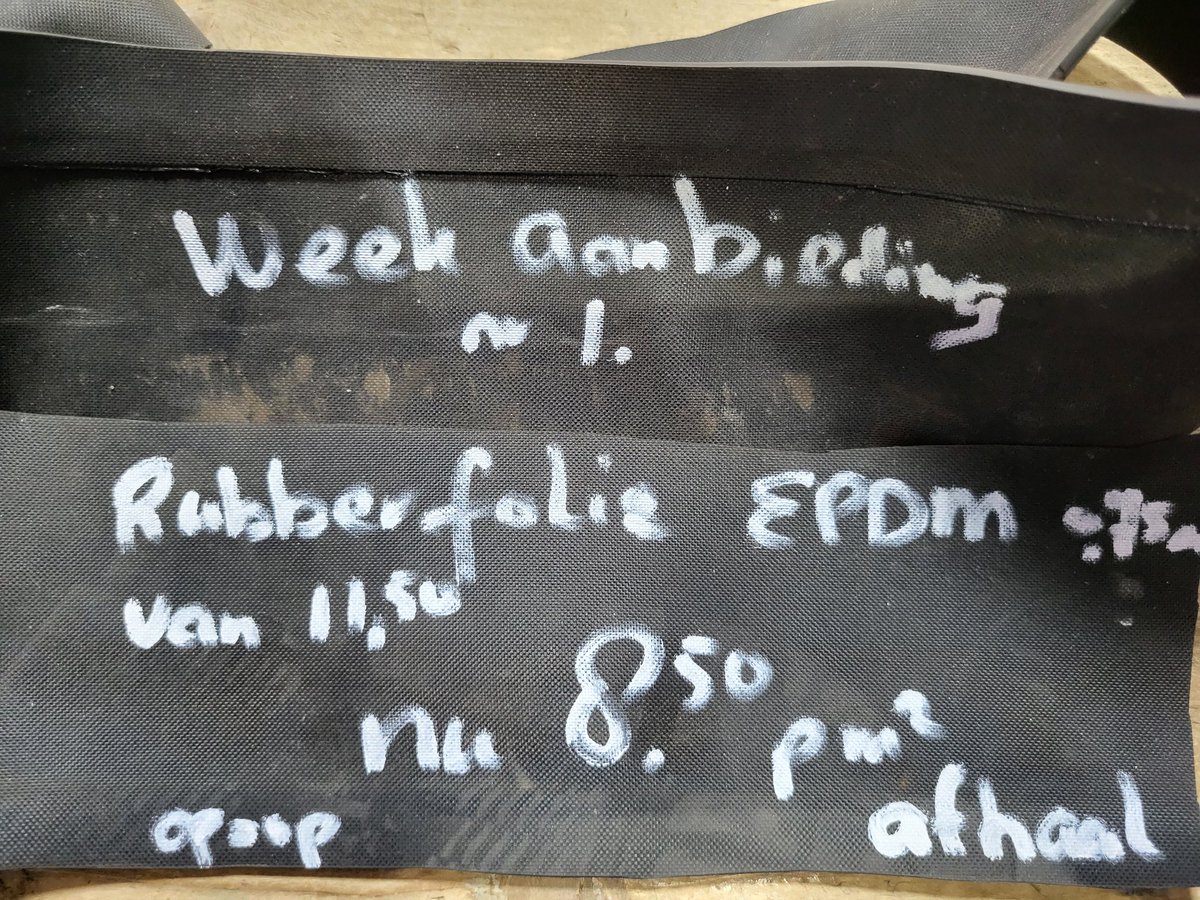 Week aanbieding
nr 1.
Rubberfolie EPDM 0.75m
van 11,50
nu 8.50 pm²
op=op afhaal